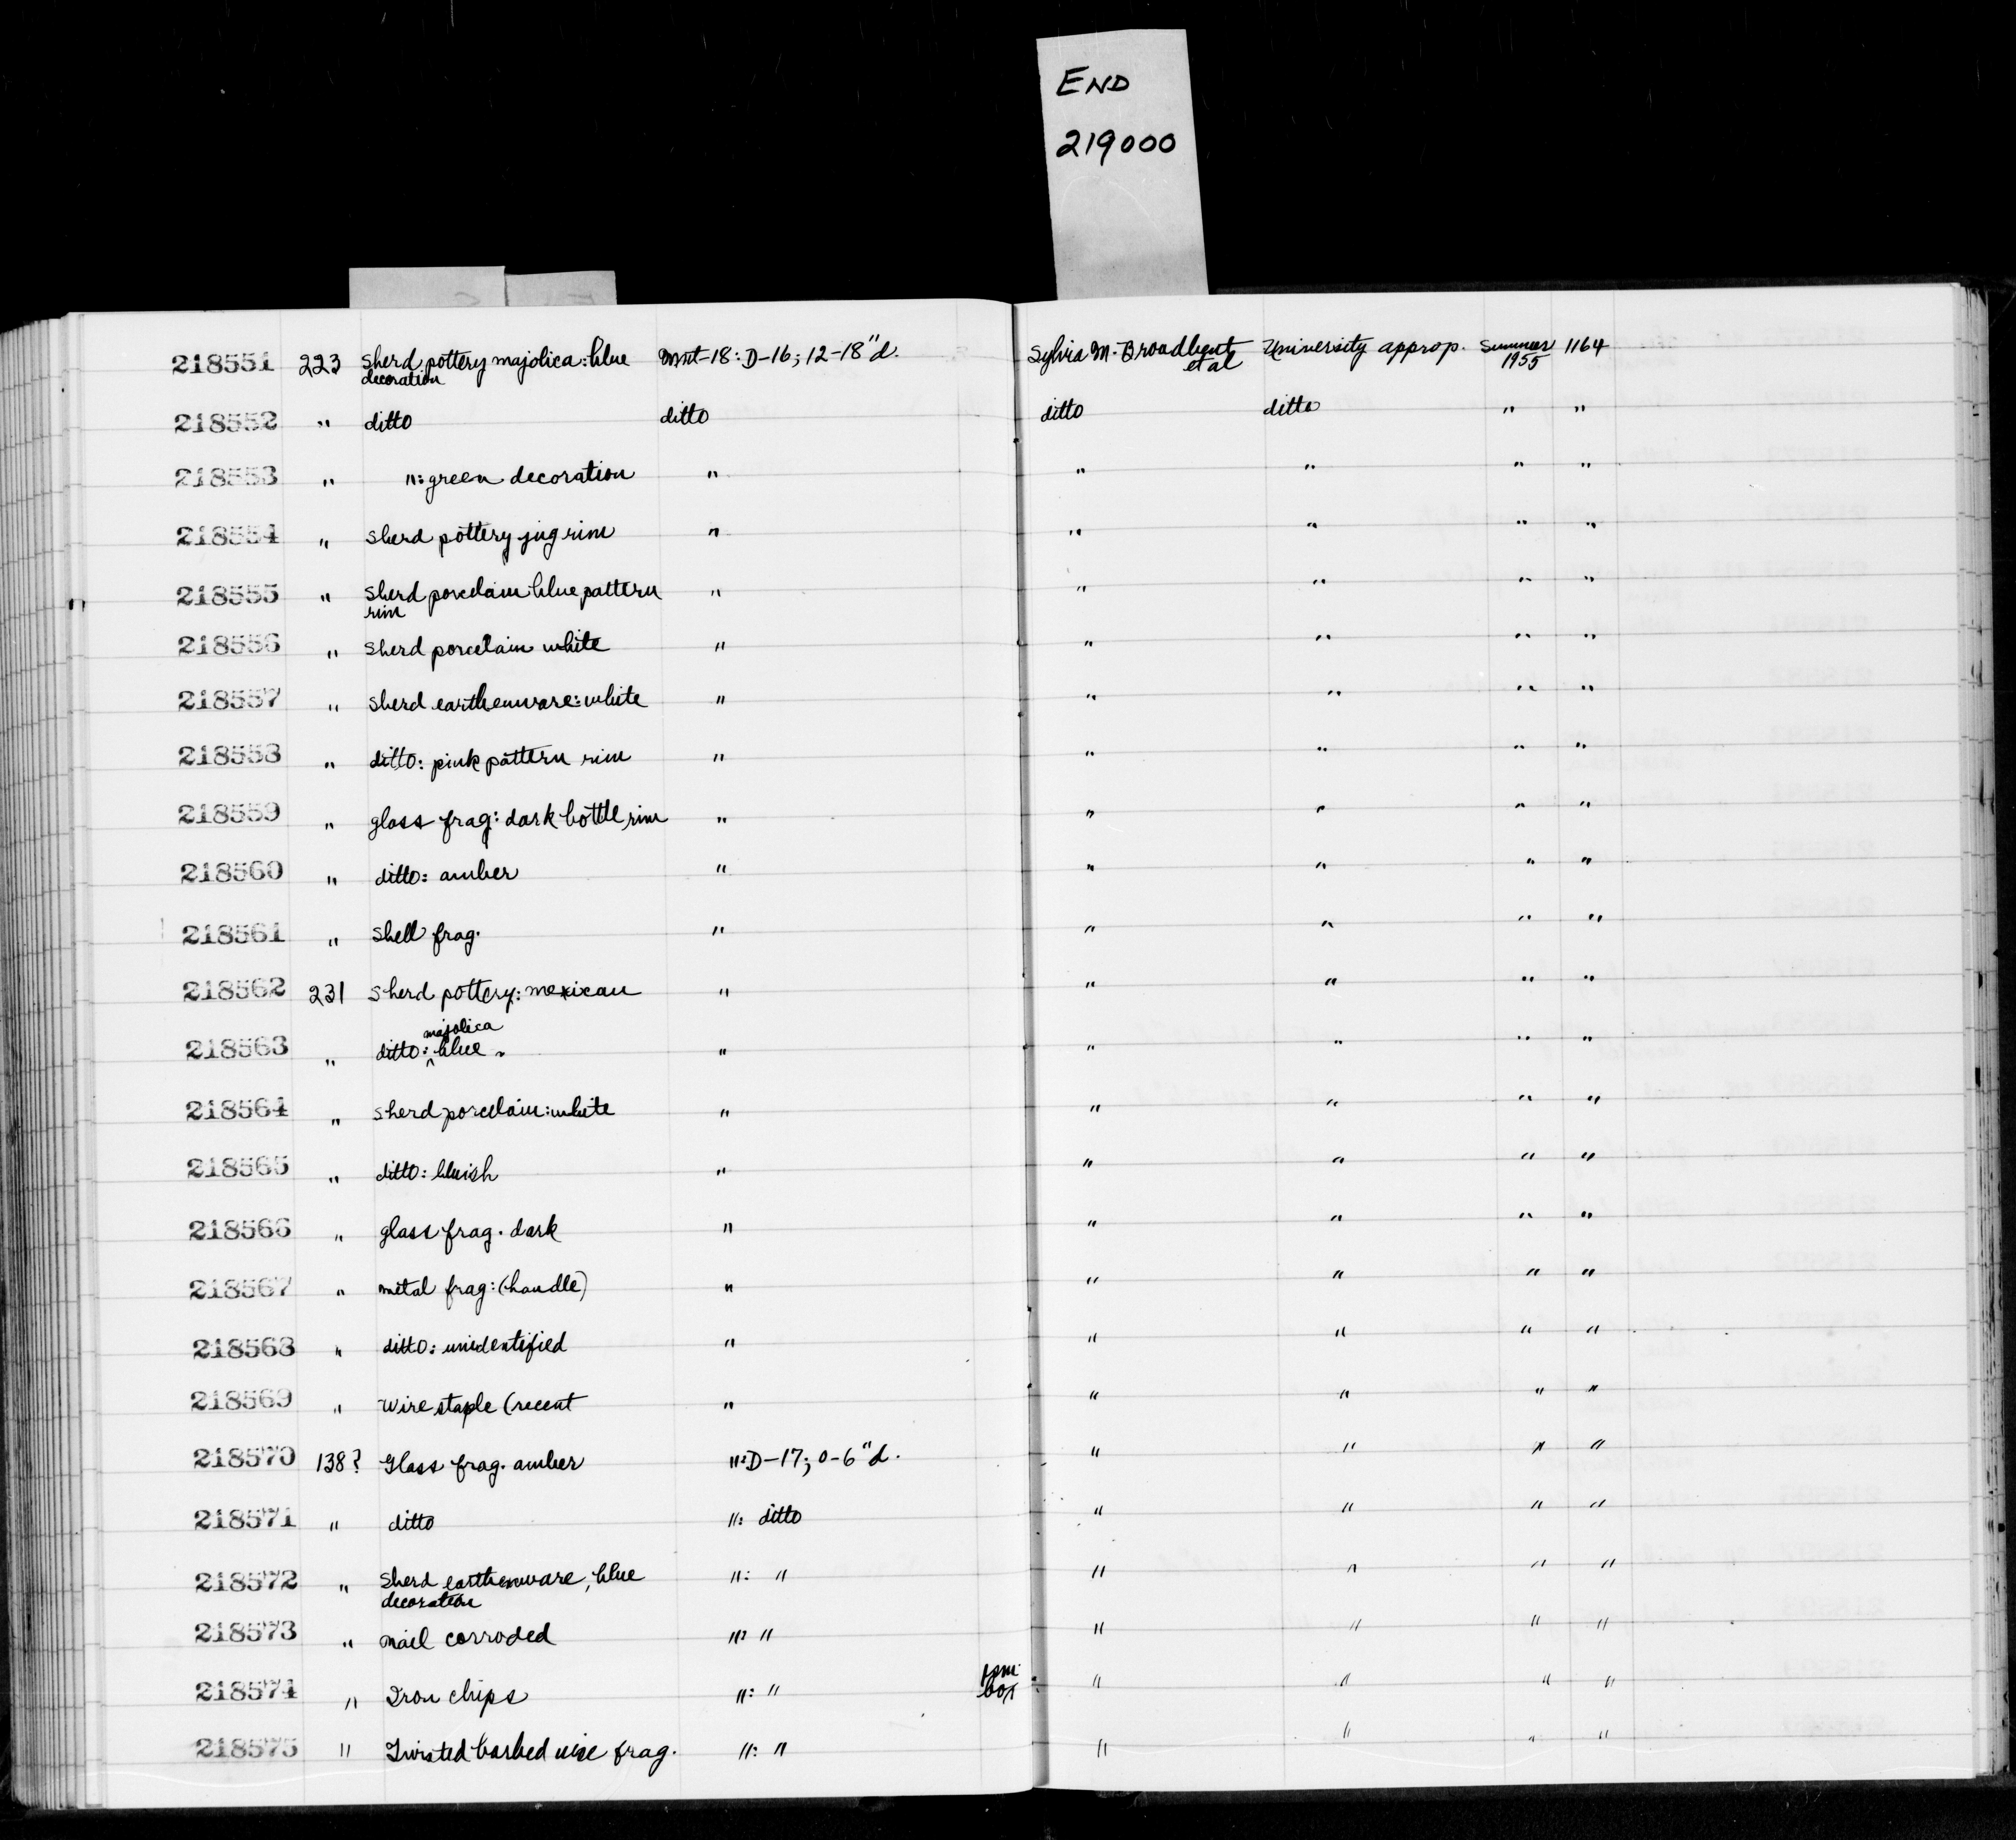 END
219000
218551 223 Sherd pottery majolica: blue decoration Mnt-18: D-16; 12-18"d. Sylvia M. Broadbent et al University approp. Summer 1955 1164
218552 " ditto ditto ditto ditto " "
218553 " ": green decoration " " " " "
218554 " Sherd pottery jug rim " " " " "
218555 " Sherd porcelain blue pattern rim " " " " "
218556 " Sherd porcelain white " " " " "
218557 " Sherd earthenware: white " " " " "
218558 " ditto: pink pattern rim " " " " "
218559 " glass frag: dark bottle rim " " " " "
218560 " ditto: amber " " " " "
218561 " Shell frag. " " " " "
218562 231 Sherd pottery: mexican " " " " "
218563 " ditto: majolica blue " " " " " "
218564 " Sherd porcelain: white " " " " "
218565 " ditto: bluish " " " " "
218566 " glass frag. dark " " " " "
218567 " metal frag: (handle) " " " " "
218568 " ditto: unidentified " " " " "
218569 " Wire staple (recent " " " " "
218570 138? Glass frag. amber ": D-17; 0-6"d. " " " "
218571 " ditto ": ditto " " " "
218572 " Sherd earthenware, blue decoration ": " " " " "
218573 " nail corroded ": " " " " "
218574 " Iron chips ": " 1 sm. box " " " "
218575 " Twisted barbed wire frag. ": " " " " "